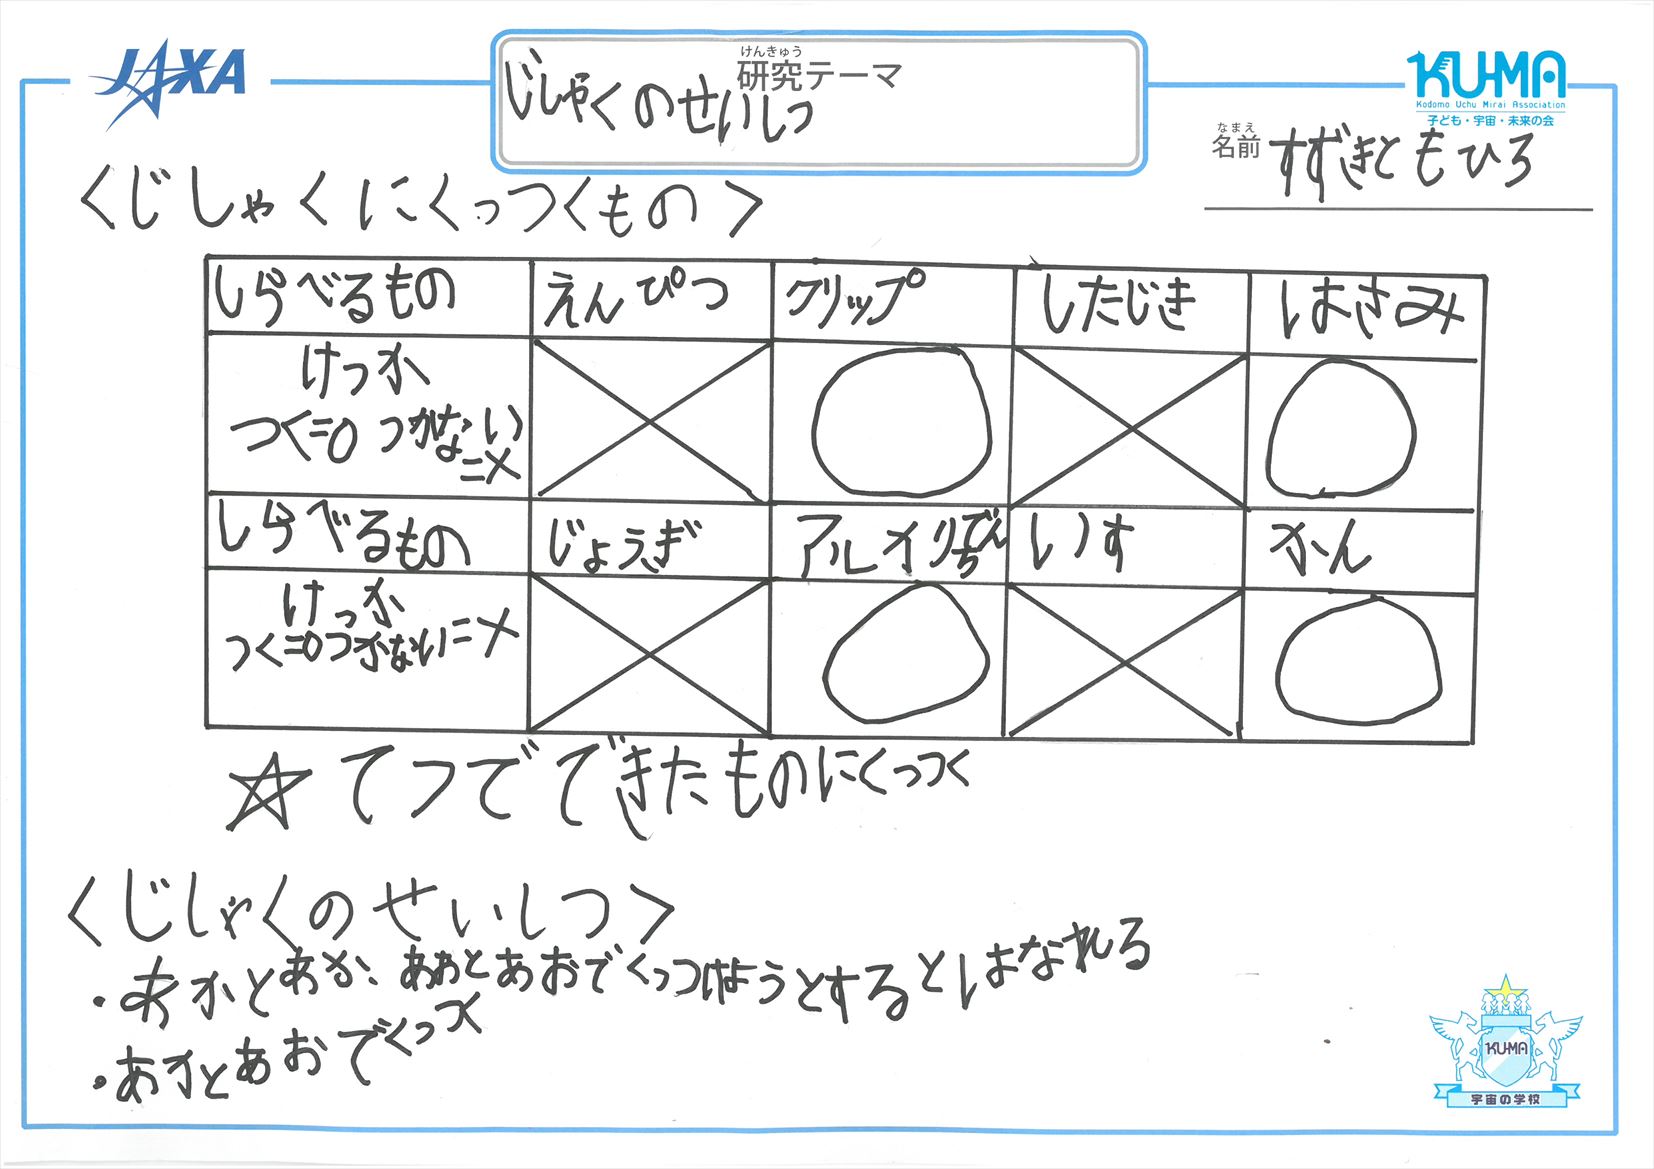 JAXA
けんきゅう
研究テーマ
じしゃくのせいしつ
KU-MA
Kodomo Uchu Mirai Association
子ども・宇宙・未来の会
なまえ
名前 すずきともひろ
<じしゃくにくっつくもの>
しらべるもの えんぴつ クリップ したじき はさみ
けっか
つく=○ つかない
=×
しらべるもの じょうぎ アルイリでんち いす かん
けっか
つく=○つかない=×
☆てつでできたものにくっつく
<じしゃくのせいしつ>
・あかとあか、あおとあおでくっつけようとするとはなれる
・あかとあおでくっつく
KU-MA
宇宙の学校